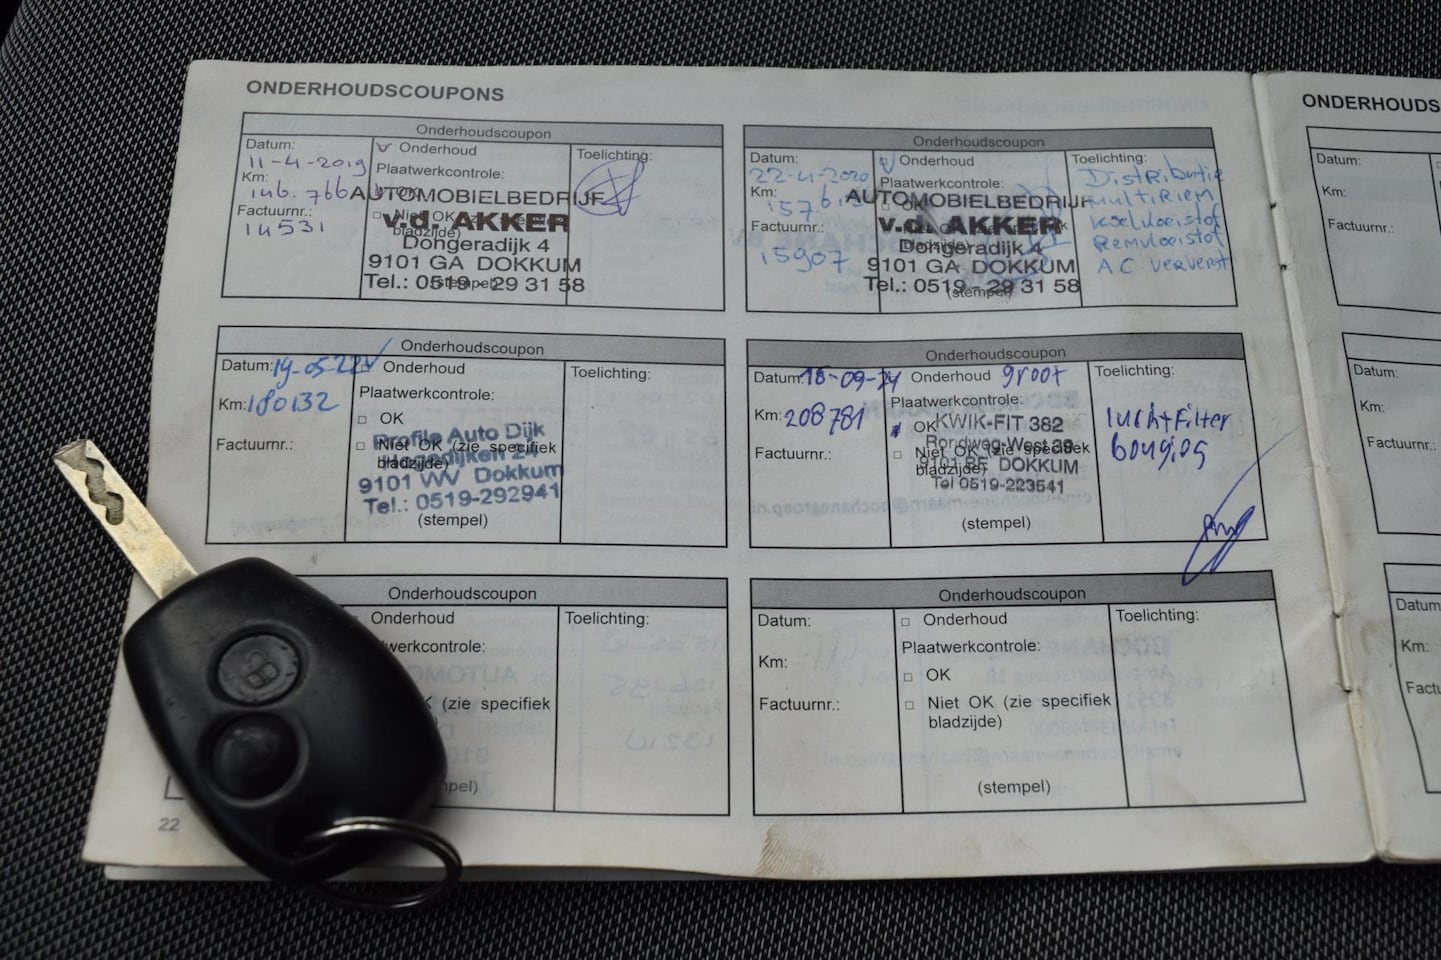 ONDERHOUDSCOUPONS
Onderhoudscoupon
Datum:
11-4-2019
Km:
146.766
Factuurnr.:
14531
Onderhoud
Plaatwerkcontrole:
OK
Niet OK (zie specifiek
bladzijde)
AUTOMOBIELBEDRIJF
v.d. AKKER
Dongeradijk 4
9101 GA DOKKUM
Tel.: 0519 - 29 31 58
(stempel)
Toelichting:
Onderhoudscoupon
Datum:
22-4-2020
Km:
Factuurnr.:
15907
Onderhoud
Plaatwerkcontrole:
OK
bladzijde)
AUTOMOBIELBEDRIJF
v.d. AKKER
Dongeradijk 4
9101 GA DOKKUM
Tel.: 0519 - 29 31 58
(stempel)
Toelichting:
Distributie
multiRiem
Koelvloeistof
Remvloeistof
A.C. ververst
Onderhoudscoupon
Datum: 19-05-22
Km: 180132
Factuurnr.:
Onderhoud
Plaatwerkcontrole:
OK
Niet OK (zie specifiek
bladzijde)
Profile Auto Dijk
Hogedijken 24
9101 WV Dokkum
Tel.: 0519-292941
(stempel)
Toelichting:
Onderhoudscoupon
Datum: 18-09-24
Km: 208781
Factuurnr.:
Onderhoud groot
Plaatwerkcontrole:
OK
Niet OK (zie specifiek
bladzijde)
KWIK-FIT 382
Rondweg-West 39
9101 BE DOKKUM
Tel 0519-223541
(stempel)
Toelichting:
lucht Filter
bougies
Onderhoudscoupon
Onderhoud
werkcontrole:
K (zie specifiek
pel)
Toelichting:
Onderhoudscoupon
Datum:
Km:
Factuurnr.:
Onderhoud
Plaatwerkcontrole:
OK
Niet OK (zie specifiek
bladzijde)
(stempel)
Toelichting:
22
ONDERHOUDS
Datum:
Km:
Factuurnr.:
Datum:
Km:
Factuurnr.:
Datum
Km:
Factu